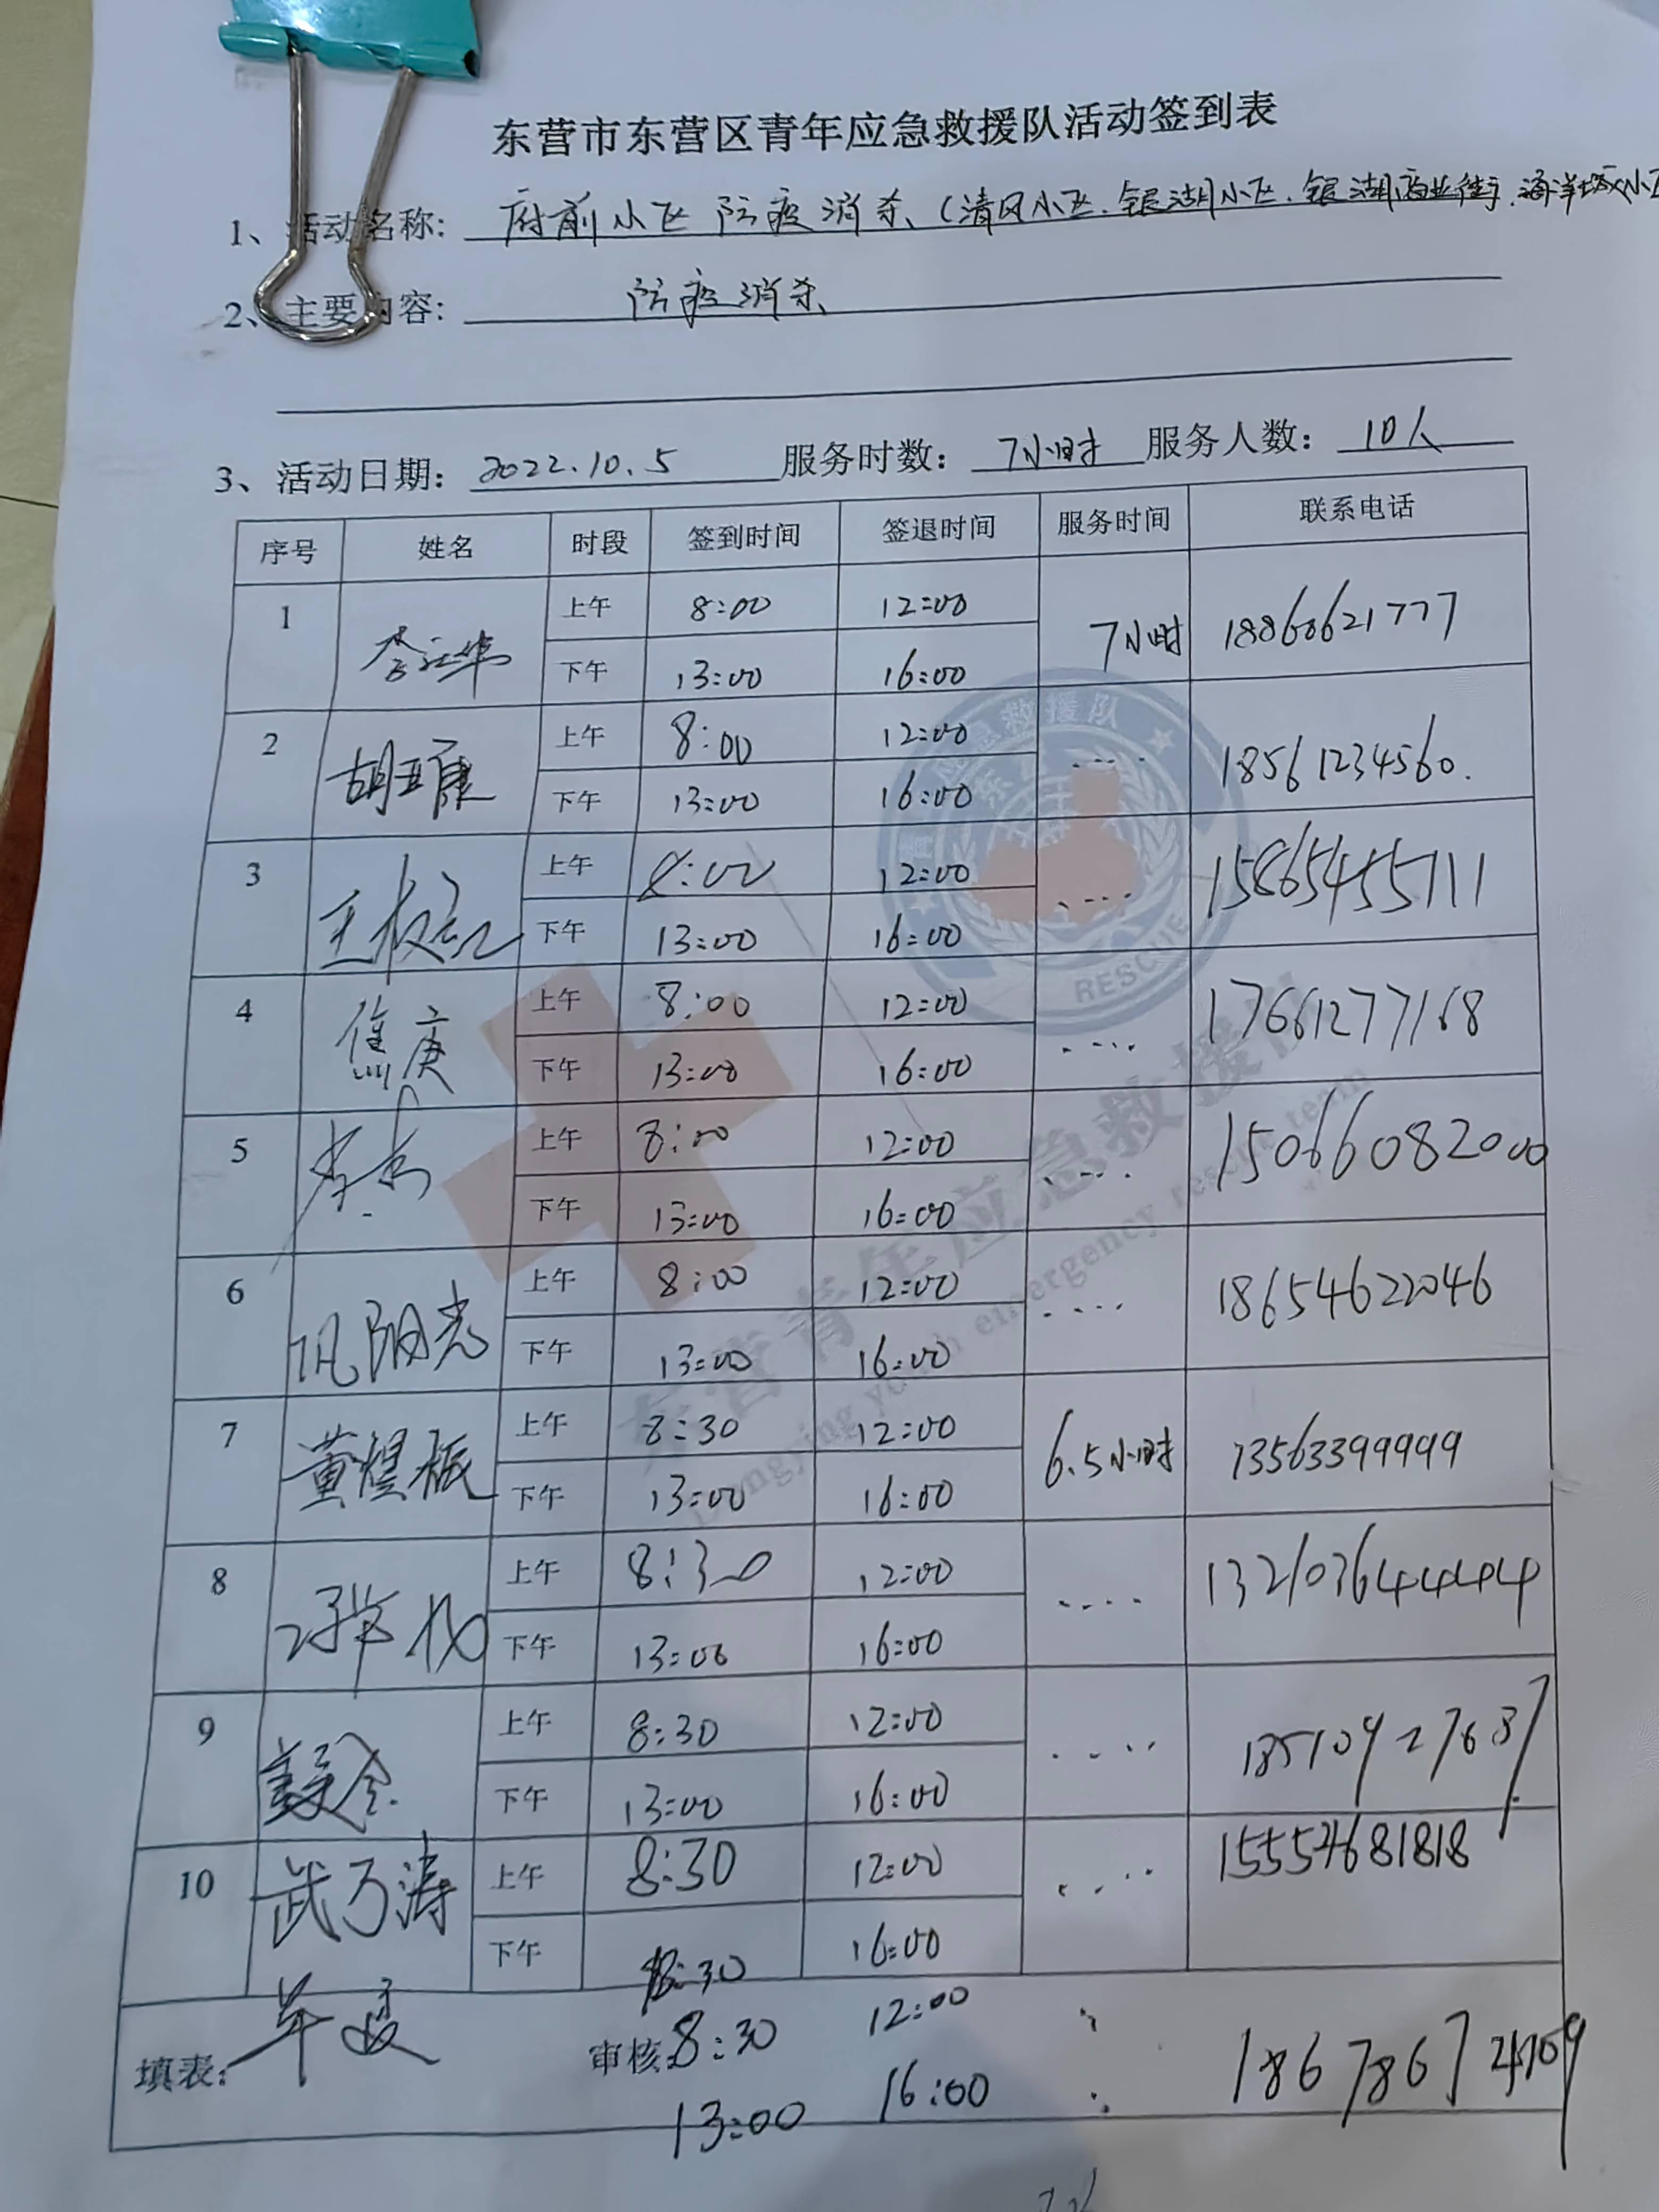 东营市东营区青年应急救援队活动签到表
1、活动名称: 府前小区防疫消杀(清风小区.银湖小区.银湖商业街.海洋城小区
2、主要内容: 防疫消杀
3、活动日期: 2022.10.5 服务时数: 7小时 服务人数: 10人
序号 姓名 时段 签到时间 签退时间 服务时间 联系电话
1 上午 8:00 12:00 7小时 18860621777
下午 13:00 16:00
2 胡亚康 上午 8:00 12:00 ---- 18561234560.
下午 13:00 16:00
3 上午 8:00 12:00 ---- 15865455711
下午 13:00 16:00
4 焦庚 上午 8:00 12:00 ---- 17661277168
下午 13:00 16:00
5 上午 8:00 12:00 ---- 15066082000
下午 13:00 16:00
6 巩阳光 上午 8:00 12:00 ---- 18654622046
下午 13:00 16:00
7 董煜振 上午 8:30 12:00 6.5小时 13563399999
下午 13:00 16:00
8 上午 8:30 12:00 ---- 13210364444
下午 13:00 16:00
9 上午 8:30 12:00 ---- 18510927687
下午 13:00 16:00
10 武乃涛 上午 8:30 12:00 ---- 15554681818
下午 16:00
填表: 审核: 8:30 12:00
13:00 16:00
青年应急救援队
RESCUE
东营青年应急救援队
Dongying youth emergency rescue team